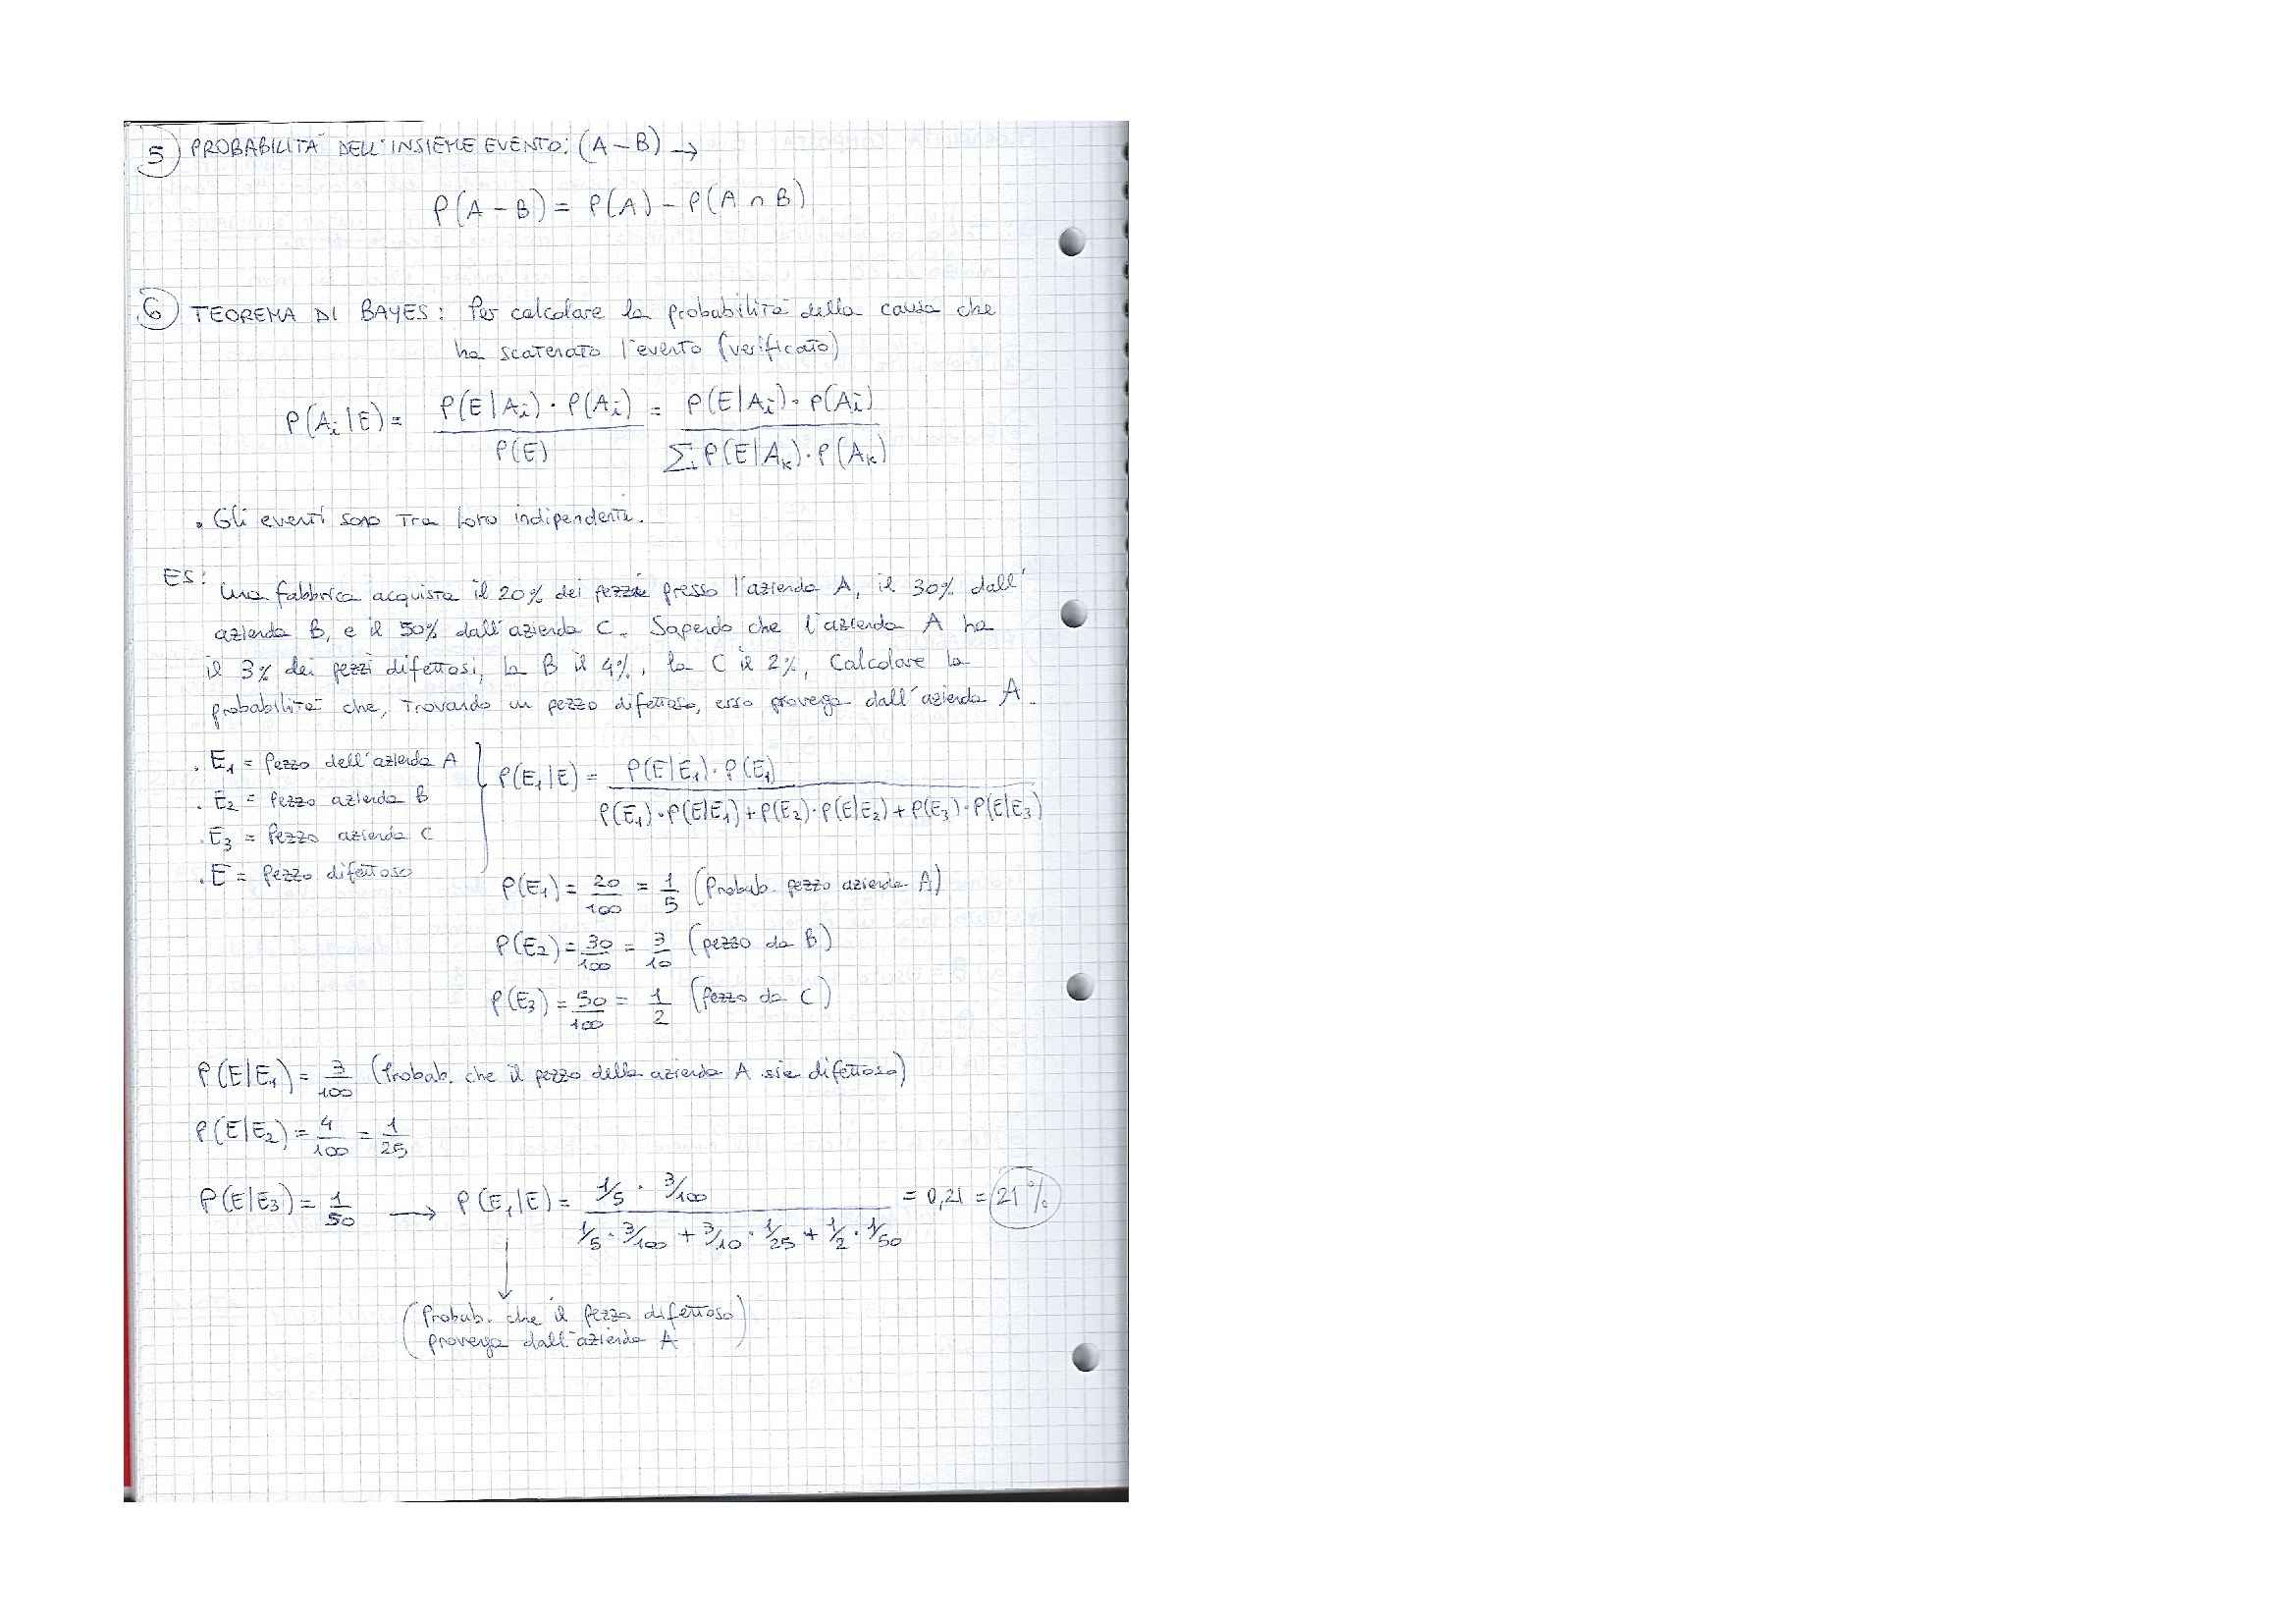 5) PROBABILITÀ DELL'INSIEME EVENTO: (A-B) →
P(A-B) = P(A) - P(A ∩ B)
6) TEOREMA DI BAYES: Per calcolare la probabilità della causa che
ha scatenato l'evento (verificato)
P(Ai|E) = P(E|Ai)·P(Ai) / P(E) = P(E|Ai)·P(Ai) / Σ P(E|Ak)·P(Ak)
. Gli eventi sono tra loro indipendenti.
ES: Una fabbrica acquista il 20% dei pezzi presso l'azienda A, il 30% dall'
azienda B, e il 50% dall'azienda C. Sapendo che l'azienda A ha
il 3% dei pezzi difettosi, la B il 4%, la C il 2%, Calcolare la
probabilità che, trovando un pezzo difettoso, esso provenga dall'azienda A.
. E1 = Pezzo dell'azienda A
. E2 = Pezzo azienda B
. E3 = Pezzo azienda C
. E = Pezzo difettoso
P(E1|E) = P(E|E1)·P(E1) / P(E1)·P(E|E1)+P(E2)·P(E|E2)+P(E3)·P(E|E3)
P(E1) = 20/100 = 1/5 (Probab. pezzo azienda A)
P(E2) = 30/100 = 3/10 (pezzo da B)
P(E3) = 50/100 = 1/2 (Pezzo da C)
P(E|E1) = 3/100 (Probab. che il pezzo della azienda A sia difettoso)
P(E|E2) = 4/100 = 1/25
P(E|E3) = 1/50 → P(E1|E) = 1/5 · 3/100 / 1/5 · 3/100 + 3/10 · 1/25 + 1/2 · 1/50 = 0,21 = 21%
(Probab. che il pezzo difettoso
provenga dall'azienda A)